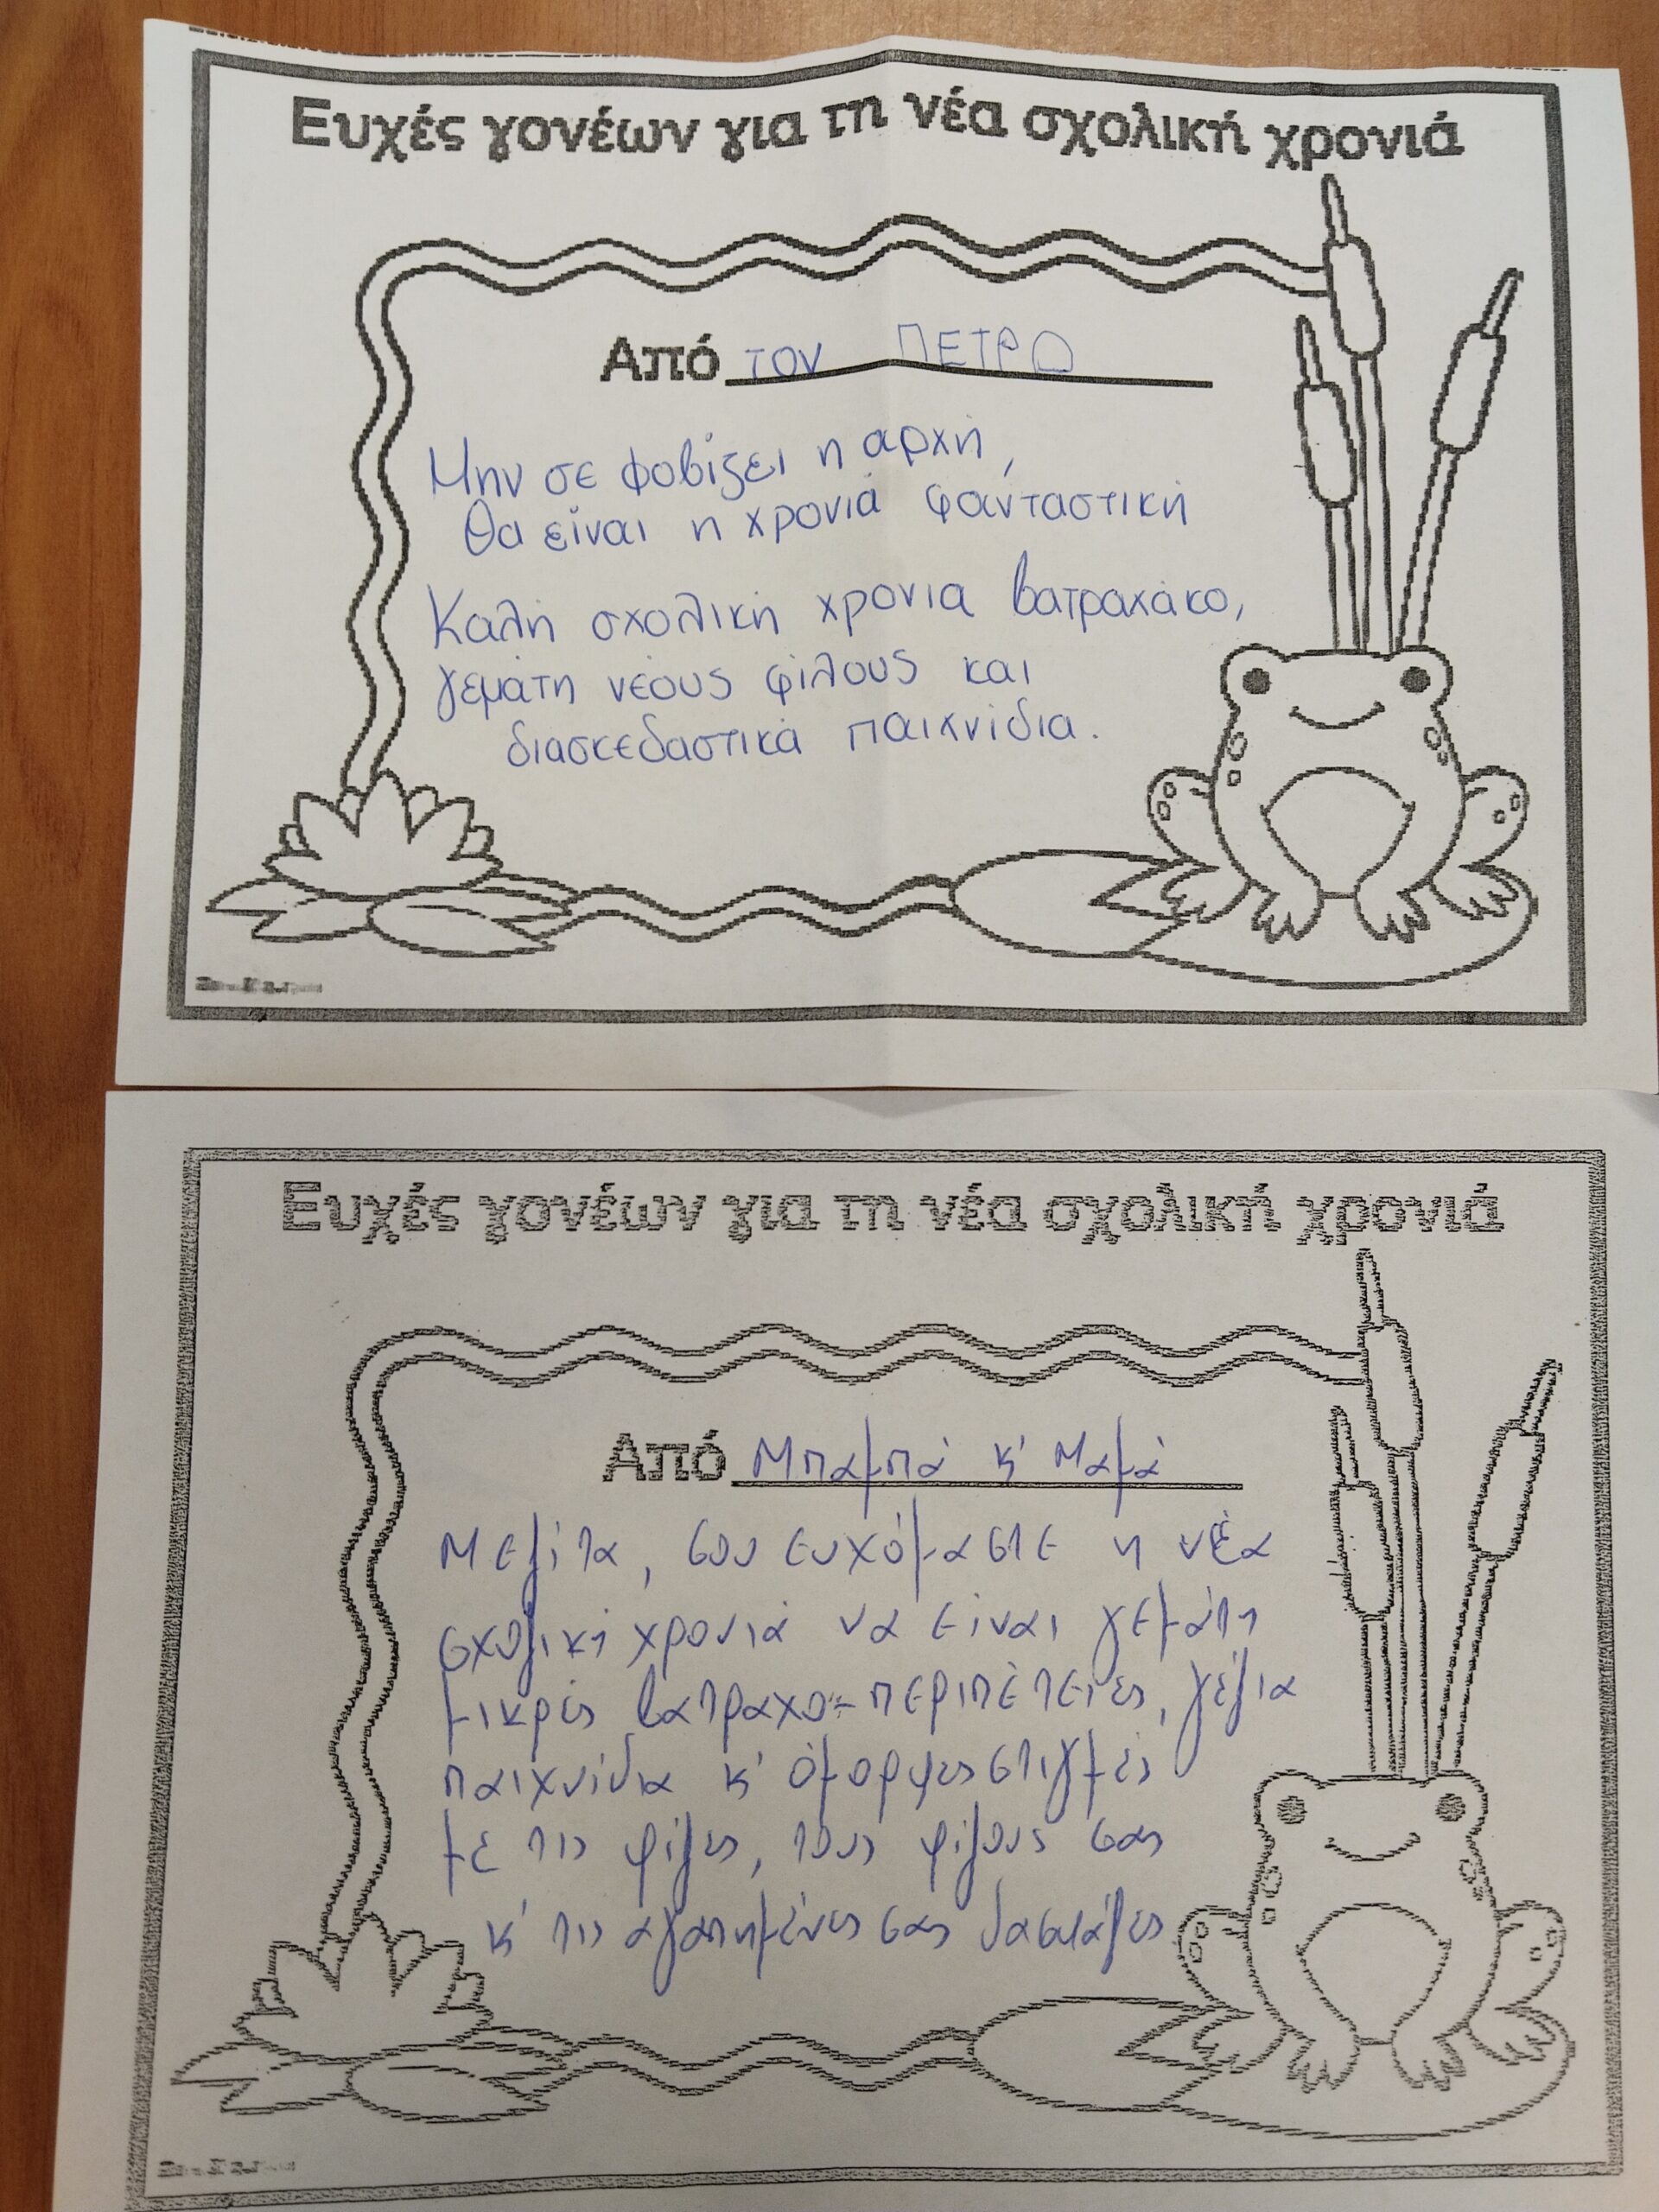 Ευχές γονέων για τη νέα σχολική χρονιά
Από τον ΠΕΤΡΟ
Μην σε φοβίζει η αρχή,
Θα είναι η χρονιά φανταστική
Καλή σχολική χρονιά βατραχάκο,
γεμάτη νέους φίλους και
διασκεδαστικά παιχνίδια.
Ευχές γονέων για τη νέα σχολική χρονιά
Από Μπαμπά κ' Μαμά
Μελίτα, σου ευχόμαστε η νέα
σχολική χρονιά να είναι γεμάτη
μικρές βατραχο-περιπέτειες, γέλια
παιχνίδια κ' όμορφες στιγμές
με τις φίλες, τους φίλους σας
κ' τις αγαπημένες σας δασκάλες